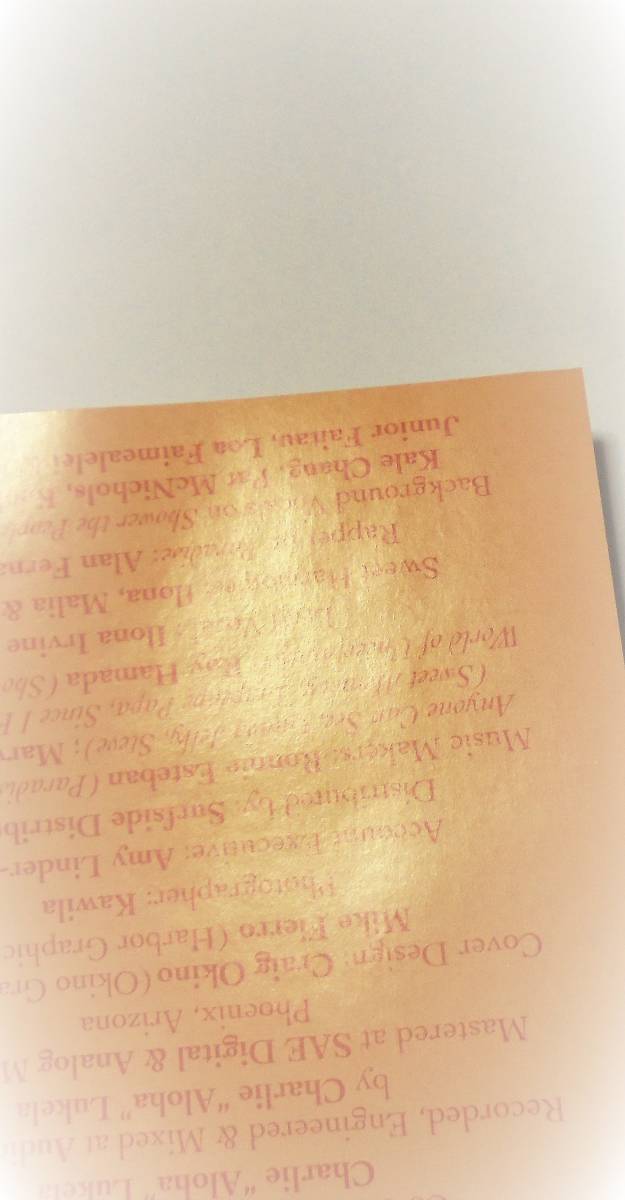 Charlie "Aloha" Lukela
Recorded, Engineered & Mixed at
by Charlie "Aloha" Lukela
Mastered at SAE Digital & Analog M
Phoenix, Arizona
Cover Design: Craig Okino (Okino Gra
Mike Fierro (Harbor Graphic
Photographer: Kawila
Account Executive: Amy Linder-
Distributed by: Surfside Distribu
Music Makers: Ronnie Esteban (Paradi
Anyone Can See, Steve); Marv
(Sweet Papa, Since I
World of Roy Hamada (Sho
Ilona Irvine
Sweet Harmonies: Ilona, Malia &
Rapper Paradise: Alan Ferna
Background Vocals on Shower the People
Kale Chang, Pat McNichols, K
Junior Faitau, Loa Faimealelei